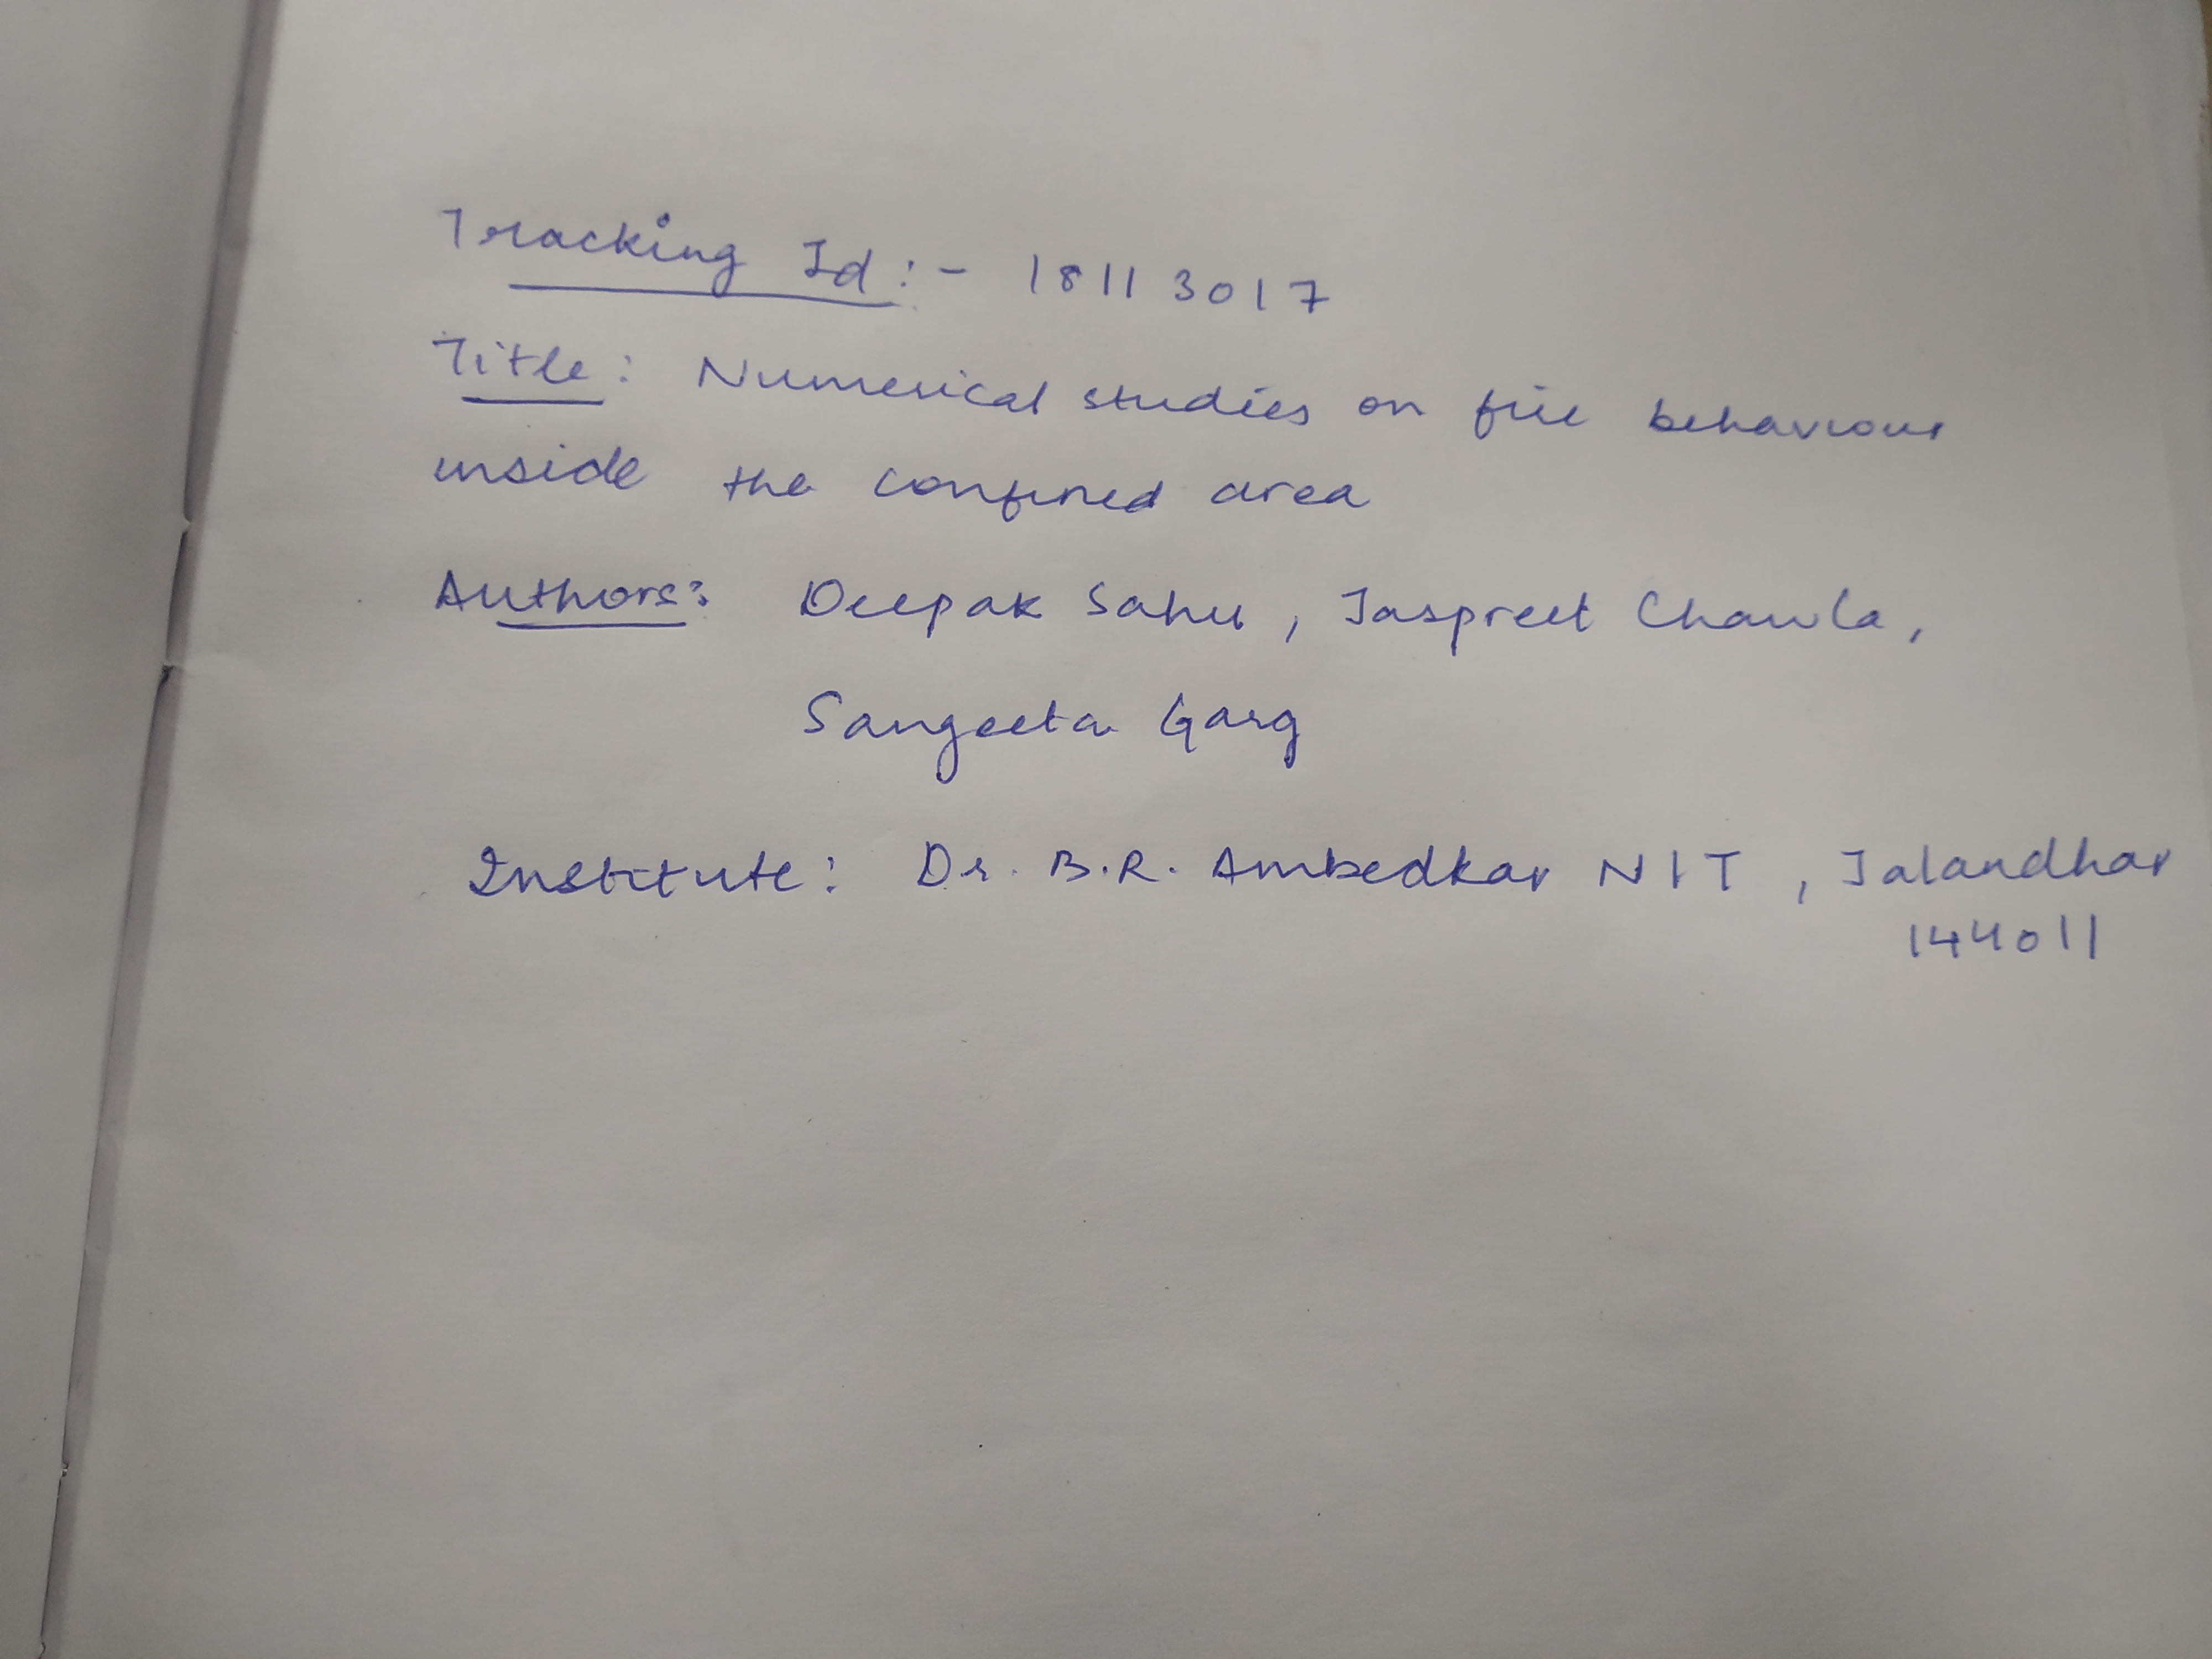 Tracking Id:- 18113017
Title: Numerical studies on fire behaviour
inside the confined area
Authors: Deepak Sahu, Jaspreet Chawla,
Sangeeta Garg
Institute: Dr. B.R. Ambedkar NIT, Jalandhar
144011